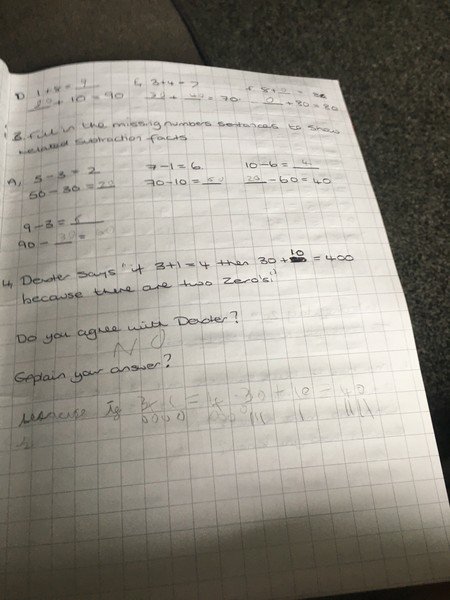 D 1+8 = 9 E, 3+4 = 7 F 8+0 =
80 + 10 = 90 30 + 40 = 70 0 + 80 = 80
3. Fill in the missing numbers sentences to show
related subtraction facts
A, 5-3 = 2 7-1 = 6 10-6 = 4
50-30 = 20 70-10 = 60 -60 = 40
9-3 =
90 - 30 =
4, Dexter says "if 3+1 = 4 then 30 + 10 = 400
because there are two zero's"
Do you agree with Dexter?
NO
Explain your answer?
3+1 = 4 30 + 10 = 40